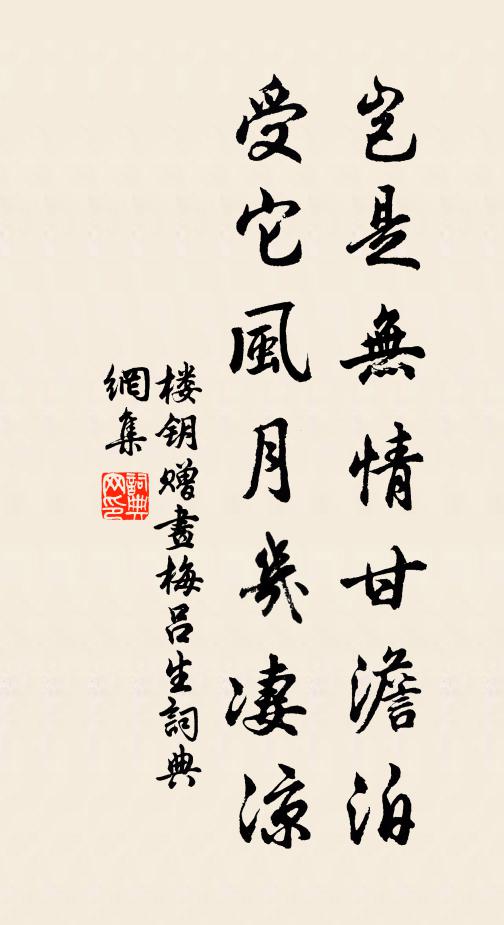 豈是無情甘澹泊
受它風月幾凄涼
楼钥赠畫梅吕生詞典
網集
詞典
网印